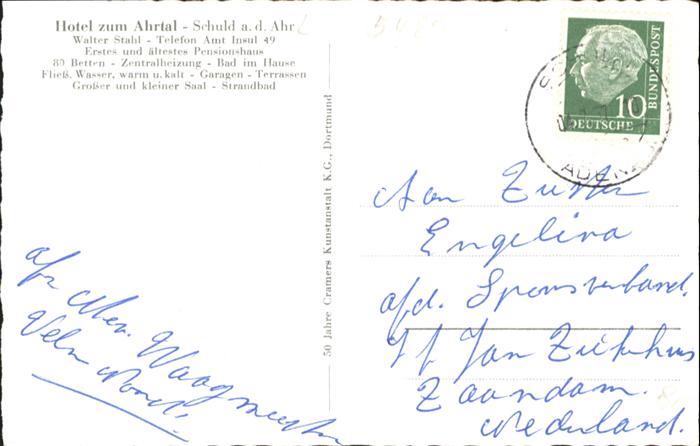 Hotel zum Ahrtal - Schuld a. d. Ahr
Walter Stahl - Telefon Amt Insul 49
Erstes und ältestes Pensionshaus
80 Betten - Zentralheizung - Bad im Hause
Fließ. Wasser, warm u. kalt - Garagen - Terrassen
Großer und kleiner Saal - Strandbad
50 Jahre Cramers Kunstanstalt K.G., Dortmund
10
DEUTSCHE
BUNDESPOST
ADENAU
Aan Zuster
Engelina
afd. Sponsverband.
Jan Ziekhuis
Zaandam.
Nederland.
afz Mev. Waagmeester